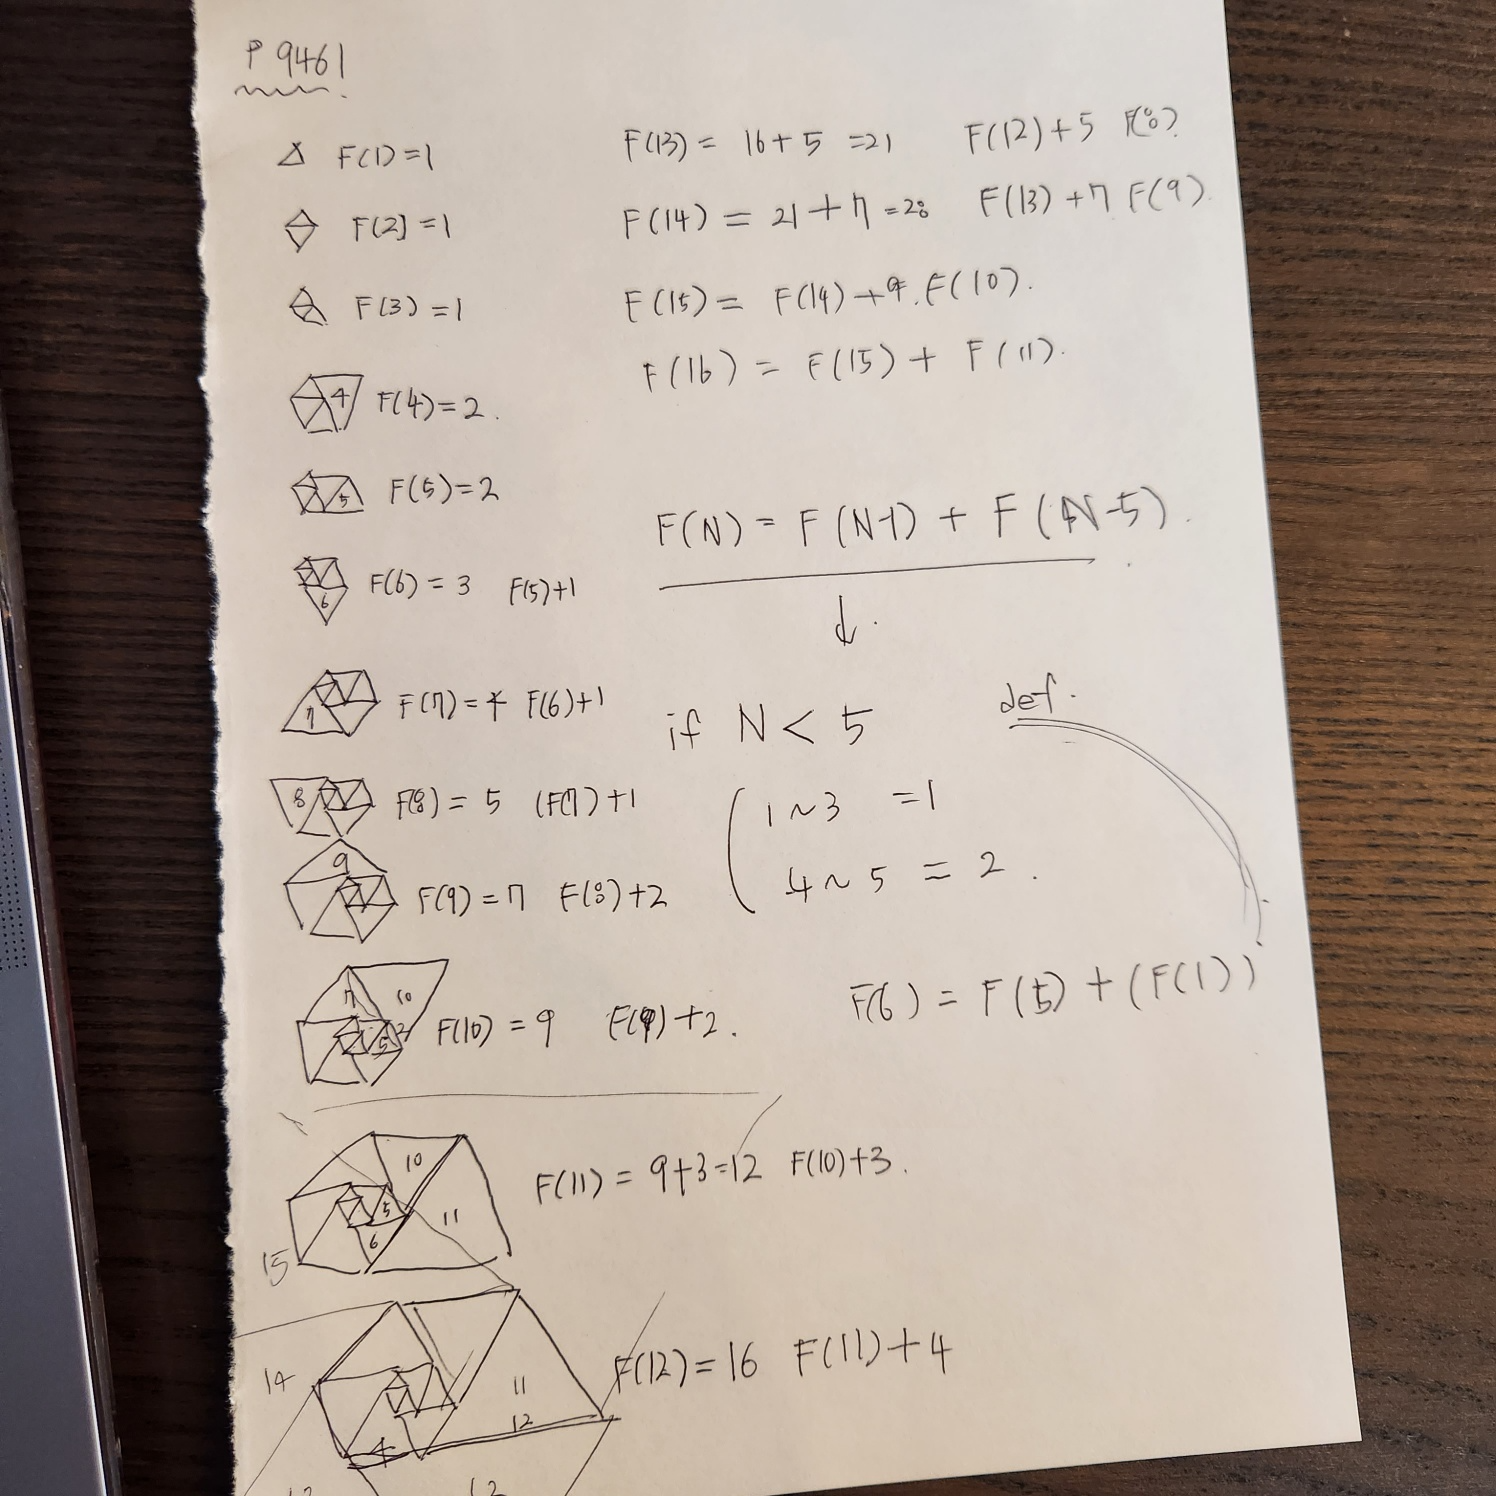 P 9461
F(1)=1
F(2]=1
F(3)=1
4 F(4)=2.
5 F(5)=2
6 F(6)=3 F(5)+1
7 F(7)=4 F(6)+1
8 F(8)=5 (F(7)+1
9 F(9)=7 F(8)+2
7 10 2 5 F(10)=9 F(9)+2.
10 5 6 11 F(11)=9+3=12 F(10)+3.
15
14 11 12 F(12)=16 F(11)+4
F(13)=16+5=21 F(12)+5 F(8)
F(14)=21+7=28 F(13)+7 F(9).
F(15)=F(14)+9. F(10).
F(16)=F(15)+F(11).
F(N)=F(N-1)+F(N-5).
if N<5 def.
1~3 =1
4~5 = 2.
F(6)=F(5)+(F(1))